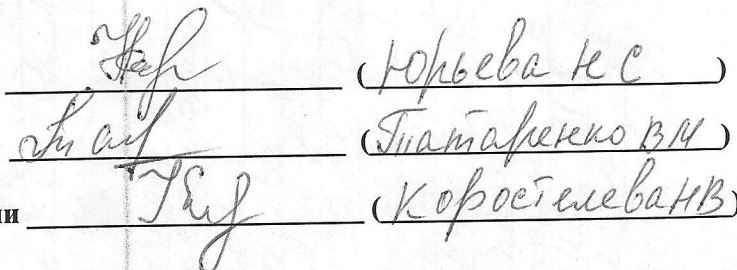 (Юрьева Н С)
(Татаренко ВМ)
ии (Коростелева НВ)